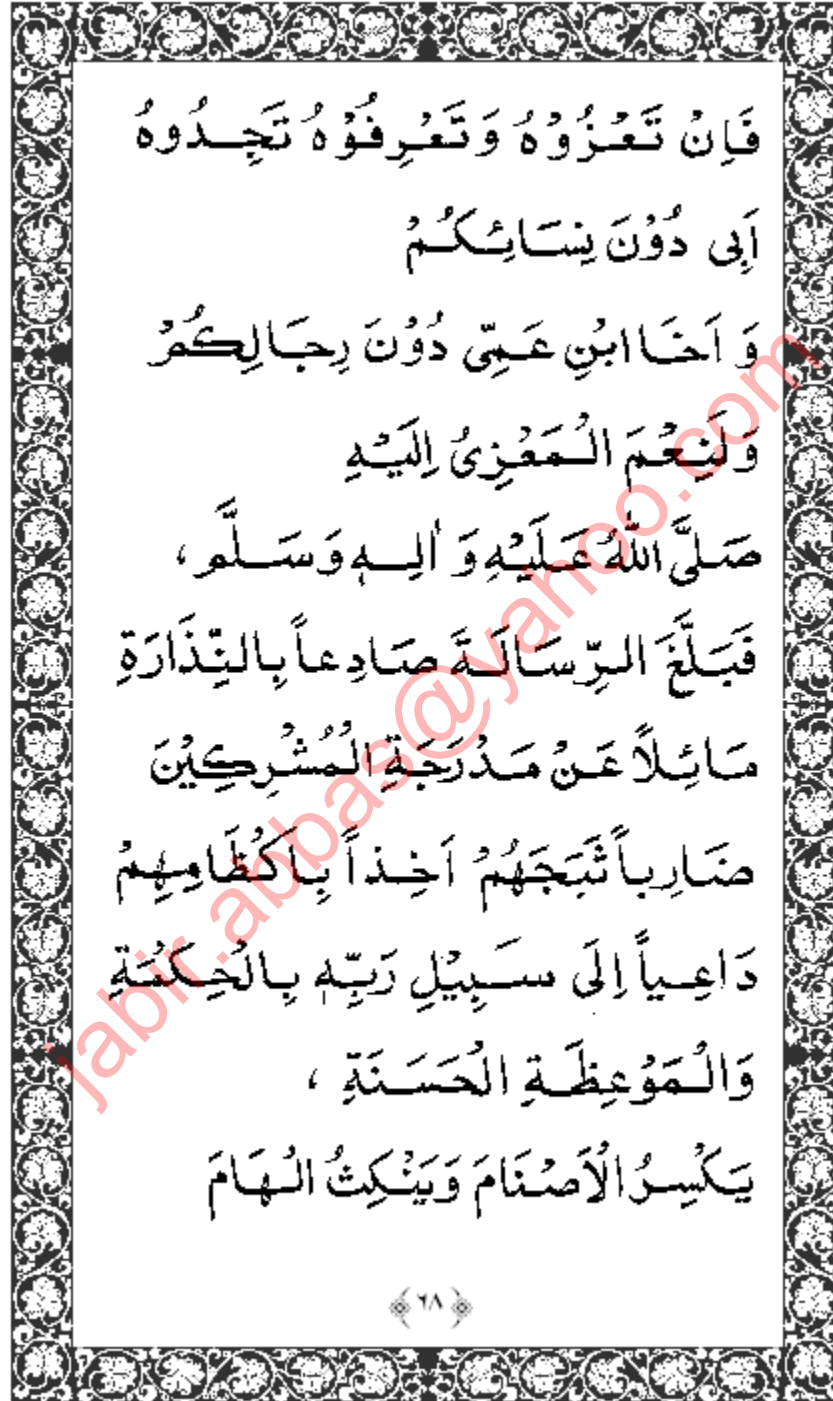 فَاِنْ تَعْزُوْهُ وَتَعْرِفُوْهُ تَجِدُوهُ
اَبِى دُوْنَ نِسَائِكُمْ
وَ اَخَا ابْنِ عَمِّى دُوْنَ رِجَالِكُمْ
وَلَنِعْمَ الْمَعْزِىُّ اِلَيْهِ
صَلَّى اللّٰهُ عَلَيْهِ وَ اٰلِهٖ وَسَلَّم ،
فَبَلَّغَ الرِّسَالَةَ صَادِعاً بِالنِّذَارَةِ
مَائِلاً عَنْ مَدْرَجَةِ الْمُشْرِكِيْنَ
ضَارِباً ثَبَجَهُمْ اَخِذاً بِاَكْظَامِهِمْ
دَاعِياً اِلَى سَبِيْلِ رَبِّهٖ بِالْحِكْمَةِ
وَالْمَوْعِظَةِ الْحَسَنَةِ ،
يَكْسِرُ الْاَصْنَامَ وَيَنْكِثُ الْهَامَ
٦٨
jabir.abbas@yahoo.com